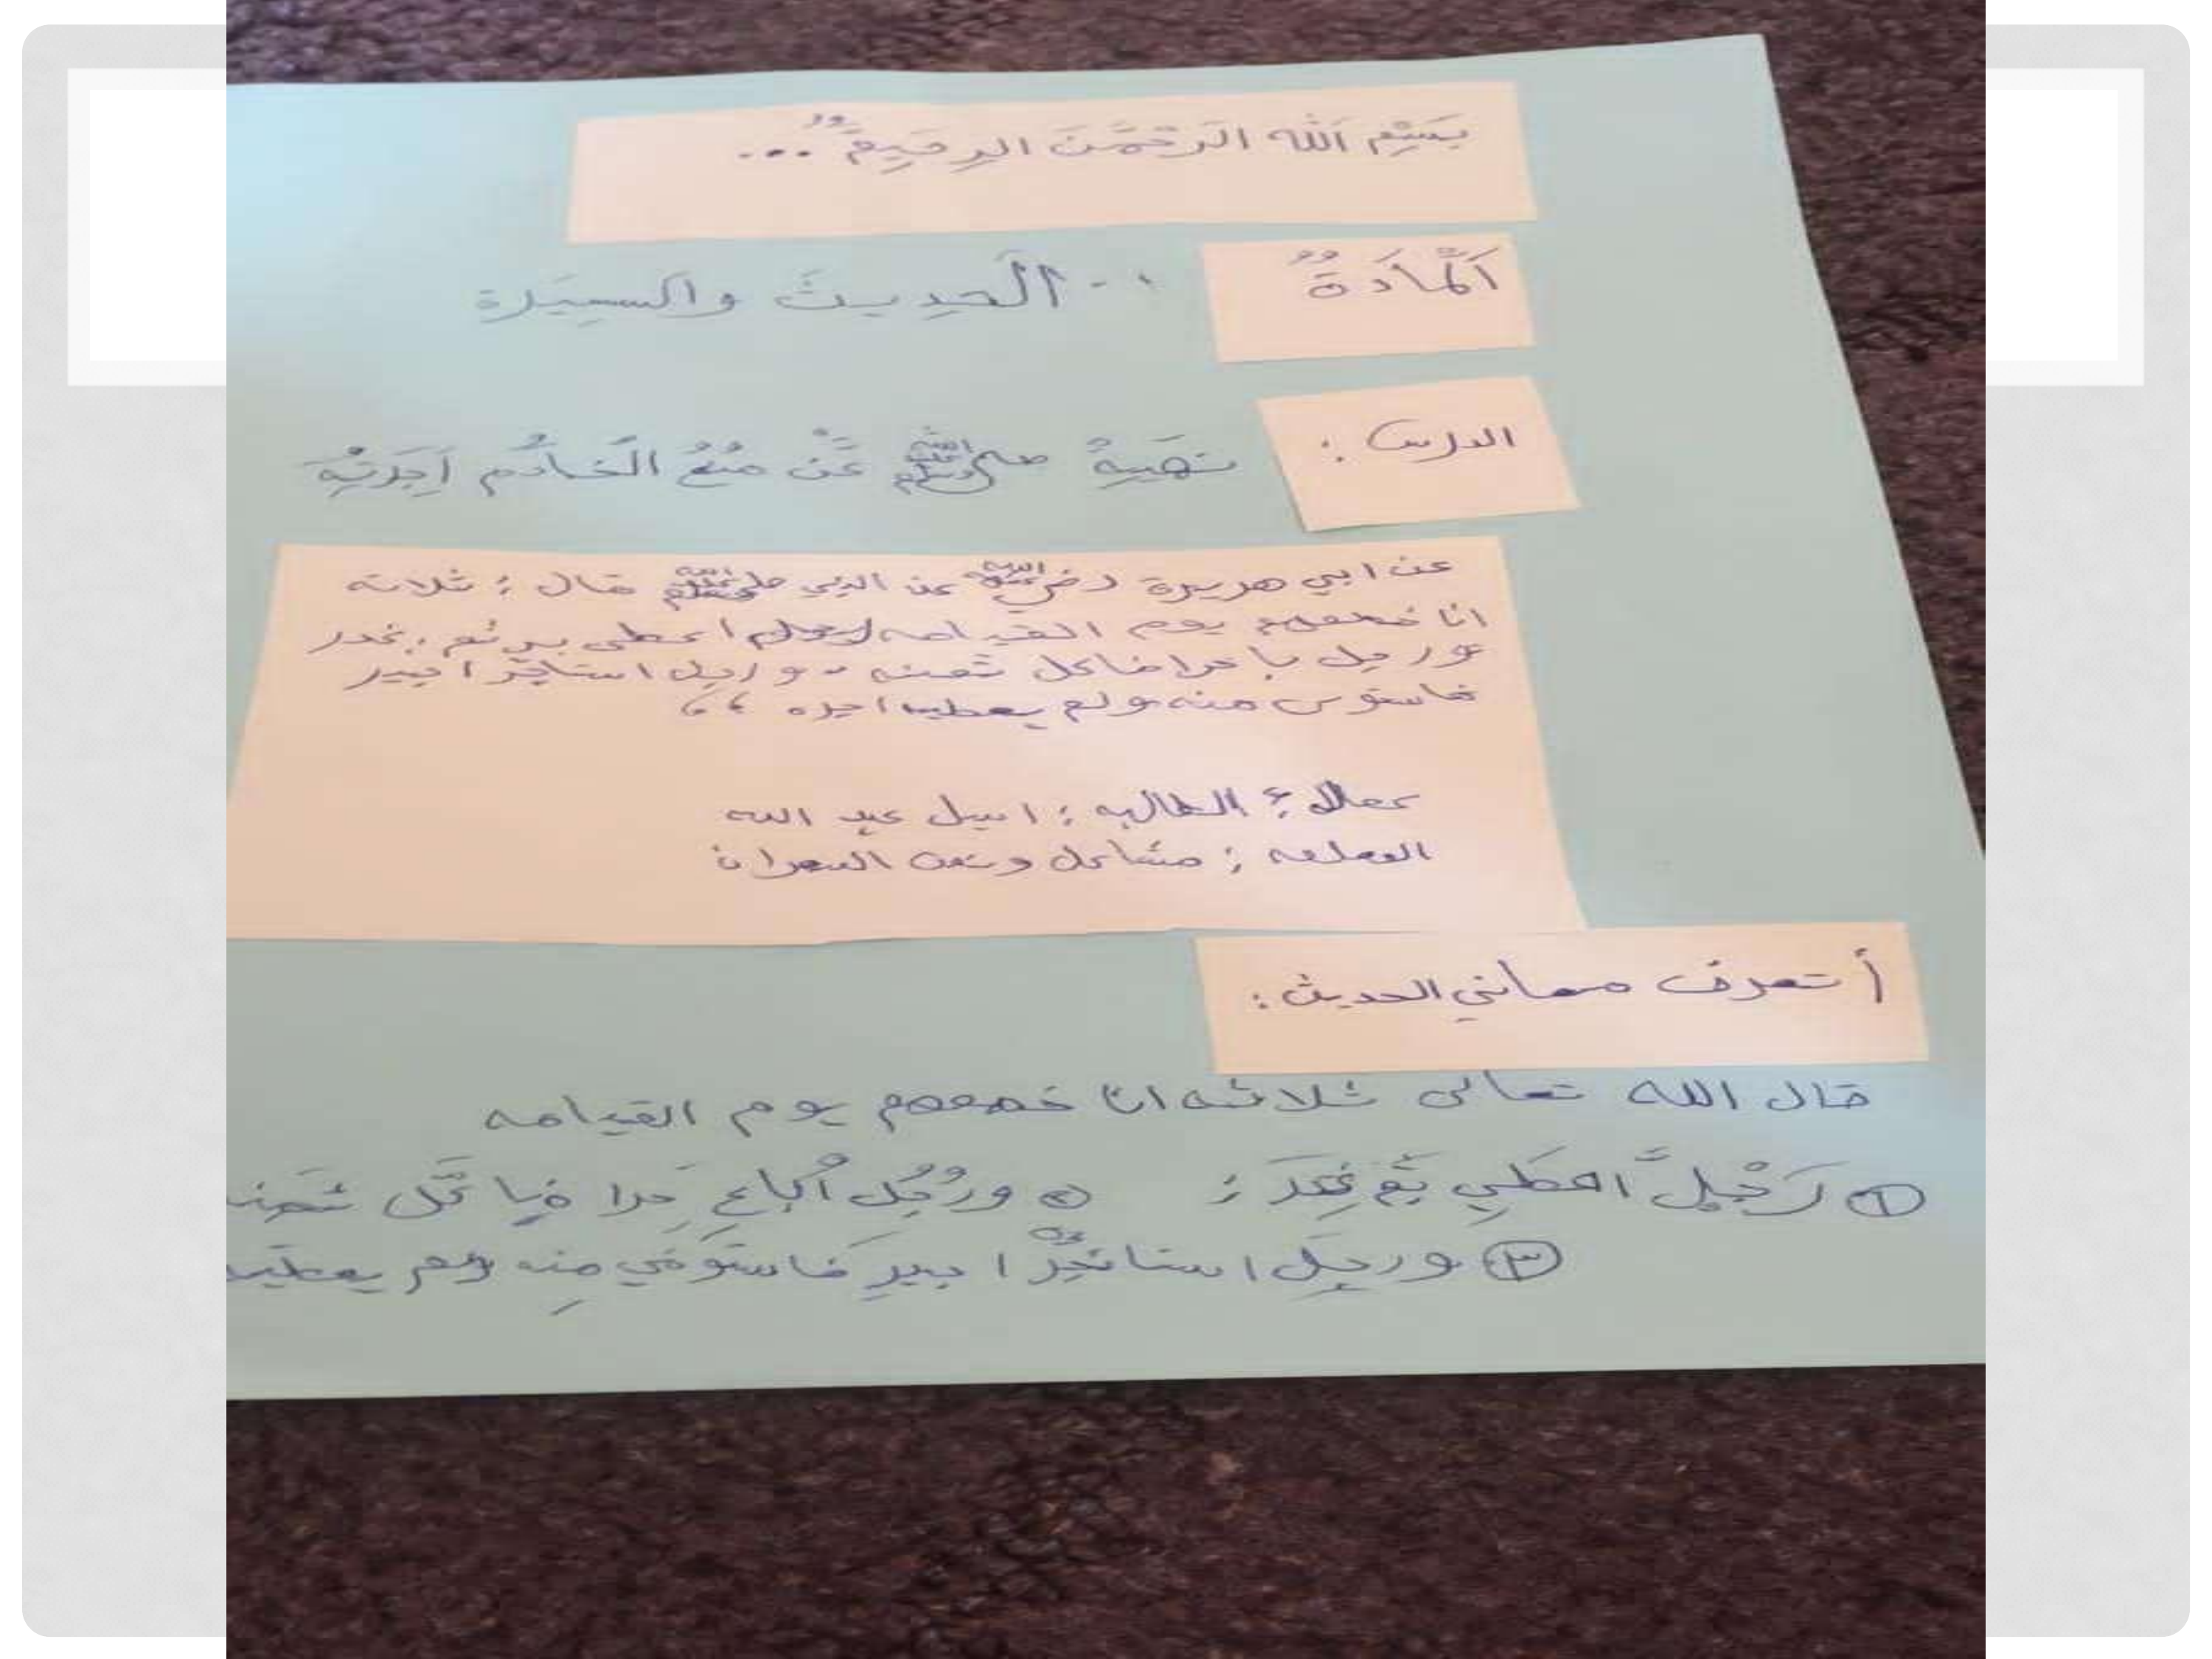 بِسْمِ اَللّٰه الرَحْمَنَ الرِحَيِمُ...
اَلْمَادَةُ
الَحَدِيثَ والسِيَرة
الدرس :
نهيهُ صلى الله عليه وسلم عَنْ مُنعُ الَخادُم اَجِرتُهَ
عن ابي هريرة رضي الله عنه عن النبي صلى الله عليه وسلم قال : ثلاثه
انا خصمهم يوم القيامه رجلم اعطى بي ثم غدر
ورجل باع حرا فاكل ثمنه ورجل استاجر اجير
فاستوى منه ولم يعطيه اجره ،،
عمل : الطالبه : اسيل عبد الله
المعلمه : مشاعل
أتعرف معاني الحديث :
قال الله تعالى ثلاثه انا خصمهم يوم القيامه
① رَجْلٍ اعطَي ثَم غِدَر : ② ورُجُل اُباع حَرا فياكَل ثمَنه
③ ورجِل استاجَر اجير فَاستَوفي منِه ولم يعطيه